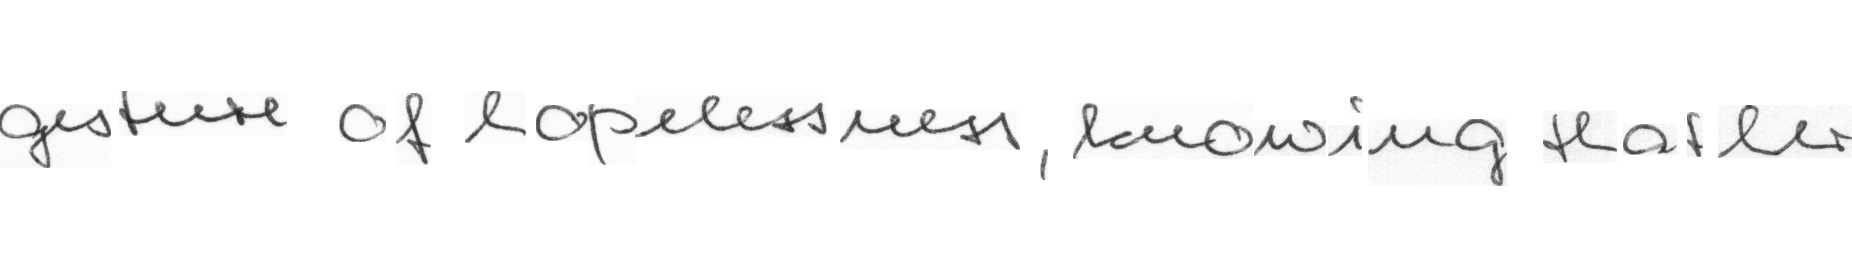 gesture of hopelessness, knowing that her